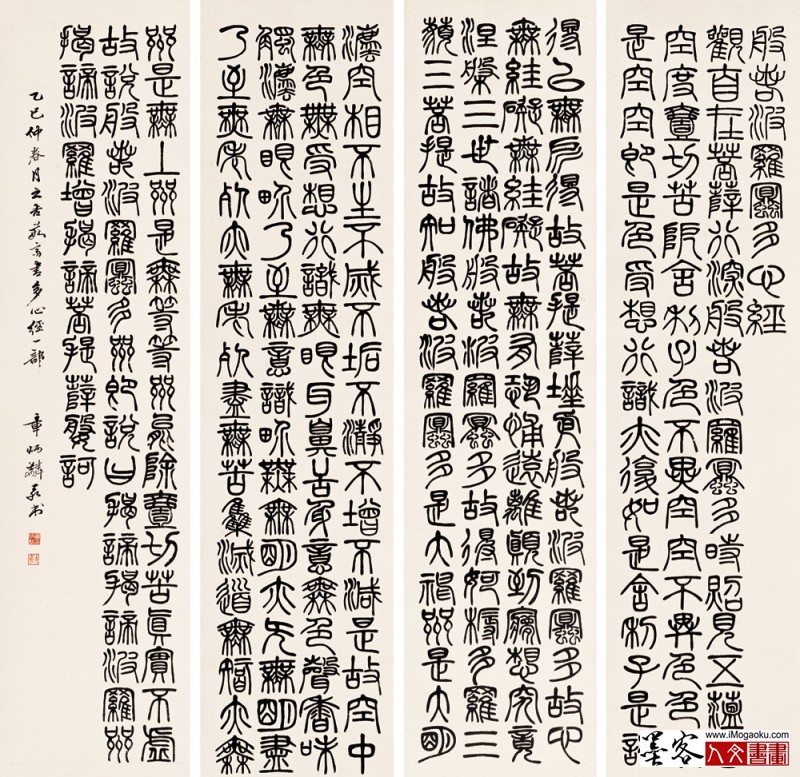 般若波羅蜜多心經
觀自在菩薩行深般若波羅蜜多時照見五蘊
空度壹切苦阨舍利子色不異空空不異色色
是空空即是色受想行識亦復如是舍利子是諸
得以無所得故菩提薩埵依般若波羅蜜多故心
無罣礙無罣礙故無有恐怖遠離顛倒夢想究竟
涅槃三世諸佛般若波羅蜜多故得阿耨多羅三
藐三菩提故知般若波羅蜜多是大神咒是大明
法空相不生不滅不垢不瀞不增不減是故空中
無色無受想行識無眼耳鼻舌身意無色聲香味
觸法無眼界乃至無意識界無無明亦无無明盡
乃至無老死亦無老死盡無苦集滅道無智亦無
咒是無上咒是無等等咒能除壹切苦真實不虛
故說般若波羅蜜多咒即說曰揭諦揭諦波羅
揭諦波羅增揭諦菩提薩婆訶
乙巳仲春月書多心經一部 章炳麟書
墨客
人文書畫
www.iMogaoku.com